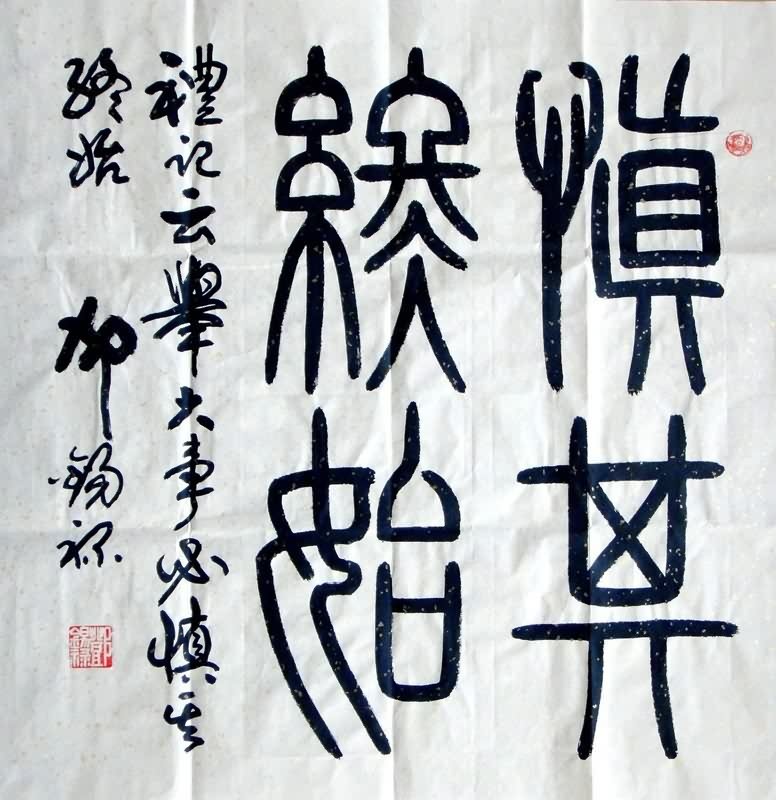 慎其
終始
禮記云舉大事必慎其
終始
錫祿